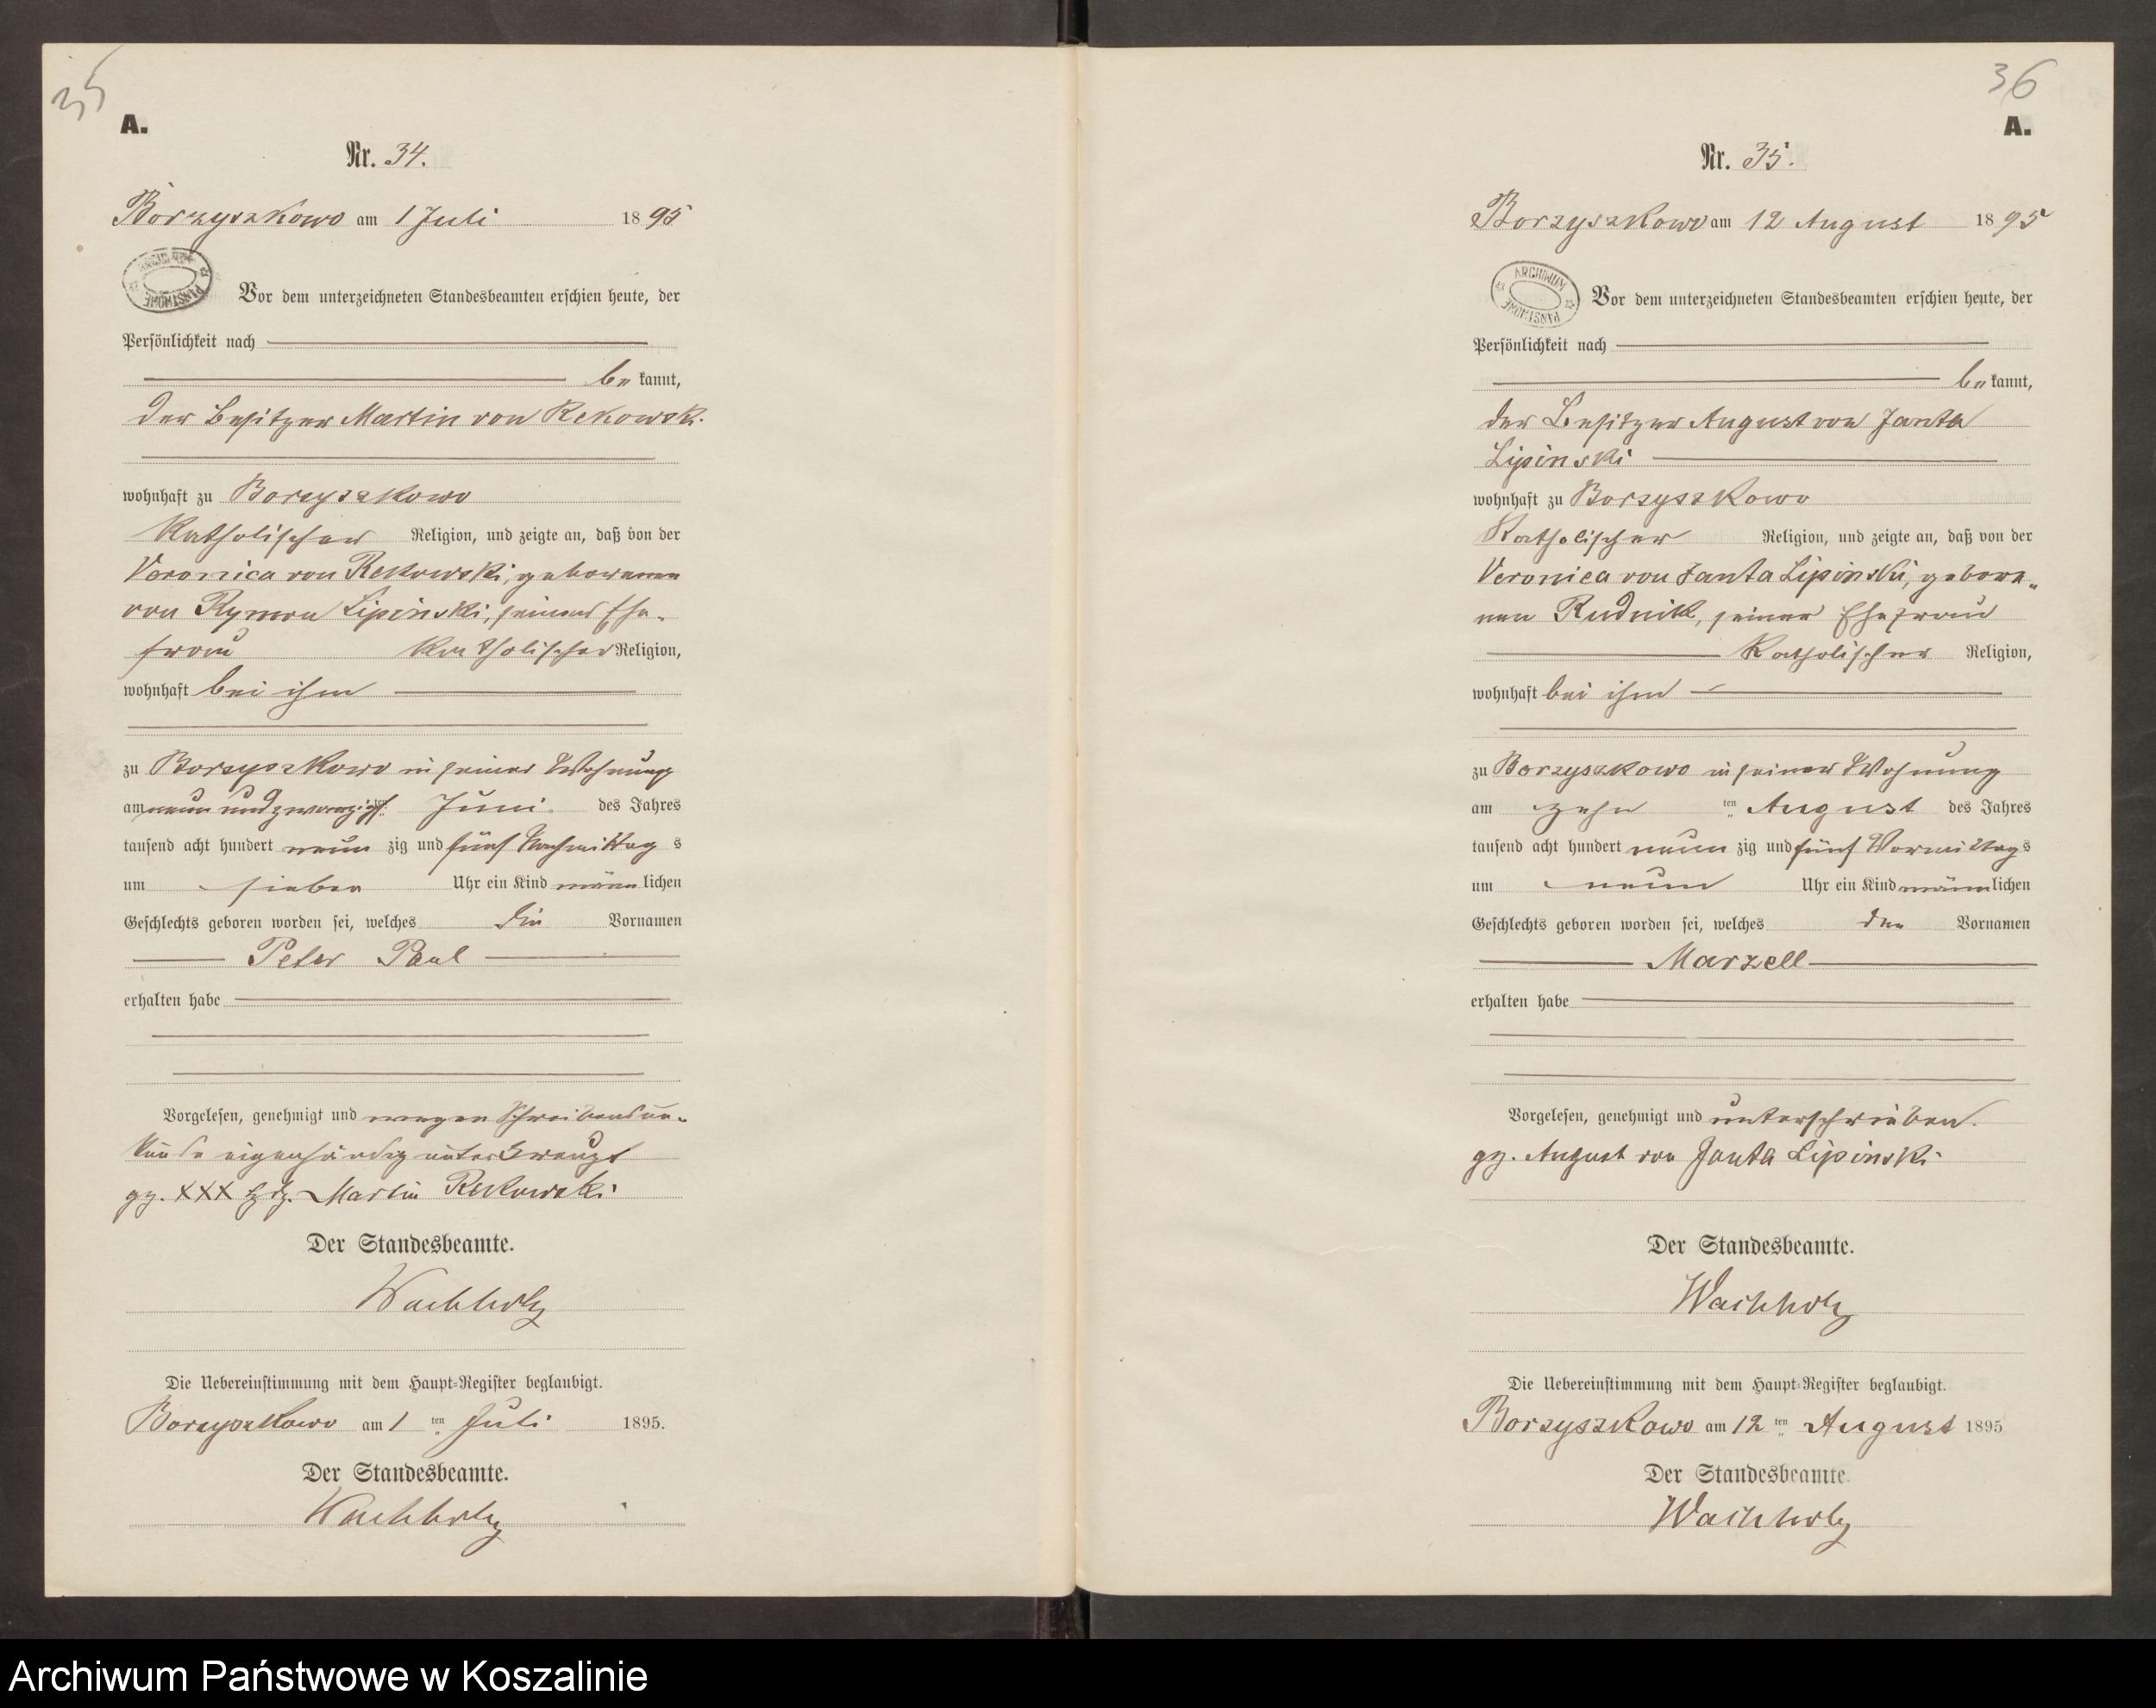 35
A.
Nr. 34.
Borzyszkowo am 1 Juli 1895
ARCHIWUM PAŃSTWOWE
Vor dem unterzeichneten Standesbeamten erschien heute, der
Persönlichkeit nach
bekannt,
der Besitzer Martin von Rekowski
wohnhaft zu Borzyszkowo
Katholischer Religion, und zeigte an, daß von der
Veronica von Rekowski, geborenen
von Rymon Lipinski, seiner Ehe-
frau Katholischer Religion,
wohnhaft bei ihm
zu Borzyszkowo in seiner Wohnung
am neun und zwanzigsten Juni des Jahres
tausend acht hundert neunzig und fünf Nachmittags
um sieben Uhr ein Kind männlichen
Geschlechts geboren worden sei, welches die Vornamen
Peter Paul
erhalten habe
Vorgelesen, genehmigt und wegen Schreibensun-
kunde eigenhändig unterkreuzt
gz. XXX Hdz. Martin Rekowski
Der Standesbeamte.
Wachholz
Die Uebereinstimmung mit dem Haupt-Register beglaubigt.
Borzyszkowo am 1ten Juli 1895.
Der Standesbeamte.
Wachholz
36
A.
Nr. 35.
Borzyszkowo am 12 August 1895
ARCHIWUM PAŃSTWOWE
Vor dem unterzeichneten Standesbeamten erschien heute, der
Persönlichkeit nach
bekannt,
der Besitzer August von Janta
Lipinski
wohnhaft zu Borzyszkowo
Katholischer Religion, und zeigte an, daß von der
Veronica von Janta Lipinski, gebore-
nen Rudnik, seiner Ehefrau
Katholischer Religion,
wohnhaft bei ihm
zu Borzyszkowo in seiner Wohnung
am zehn ten August des Jahres
tausend acht hundert neunzig und fünf Vormittags
um neun Uhr ein Kind männlichen
Geschlechts geboren worden sei, welches den Vornamen
Marzell
erhalten habe
Vorgelesen, genehmigt und unterschrieben.
gz. August von Janta Lipinski
Der Standesbeamte.
Wachholz
Die Uebereinstimmung mit dem Haupt-Register beglaubigt.
Borzyszkowo am 12ten August 1895
Der Standesbeamte.
Wachholz
Archiwum Państwowe w Koszalinie